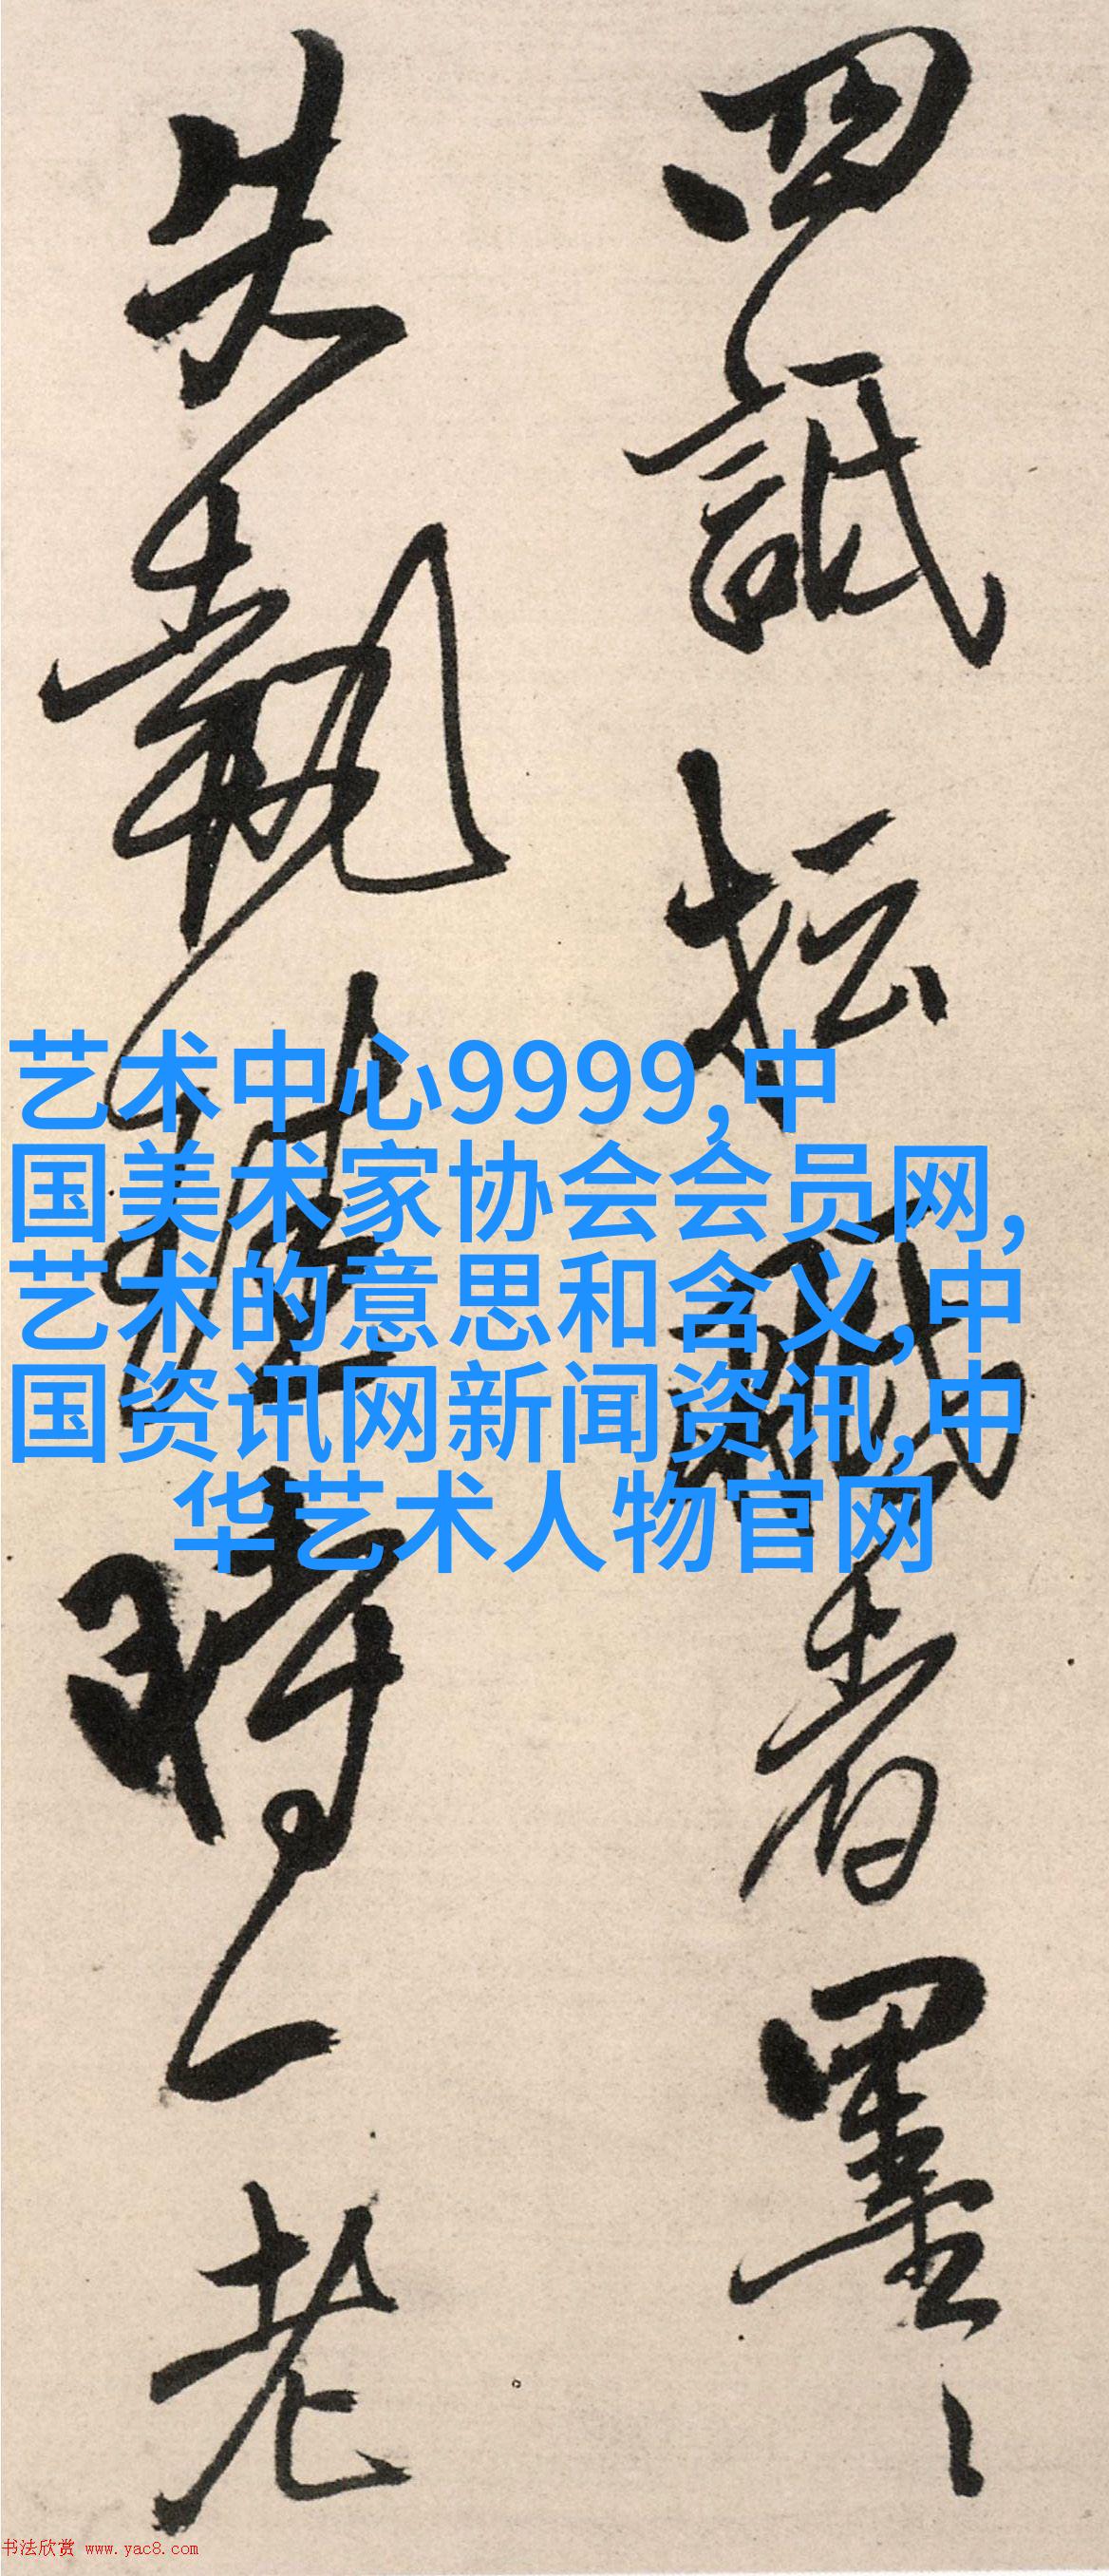 四詆坛
者墨
失執
時一老
艺术中心9999,中
国美术家协会会员网,
艺术的意思和含义,中
国资讯网新闻资讯,中
华艺术人物官网
书法欣赏 www.yac8.com